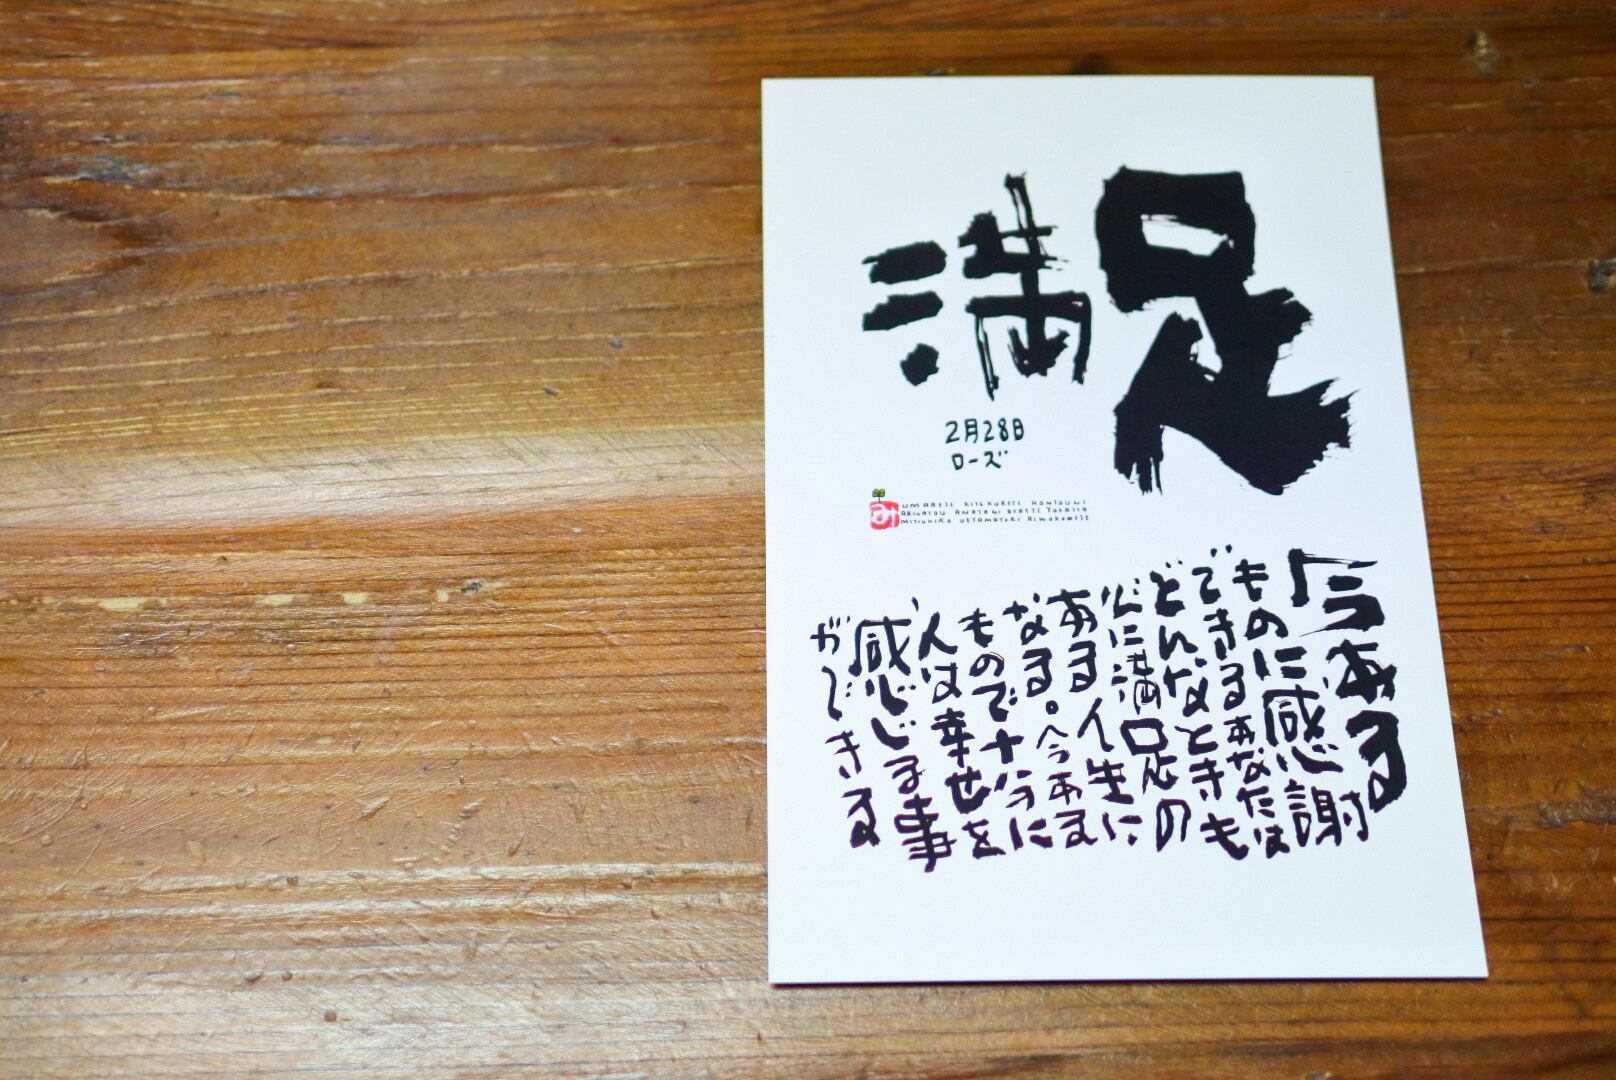 満足
2月28日
ローズ
み
UMARETE KITEKURETE HONTOUNI
ARIGATOU ANATANI DEAETE YOKATTA
MITSUHIRO
今ある
ものに感謝
できるあなたは
どんなときも
心に満足の
ある人生に
なる。今ある
もので十分に
人は幸せを
感じる事
ができる